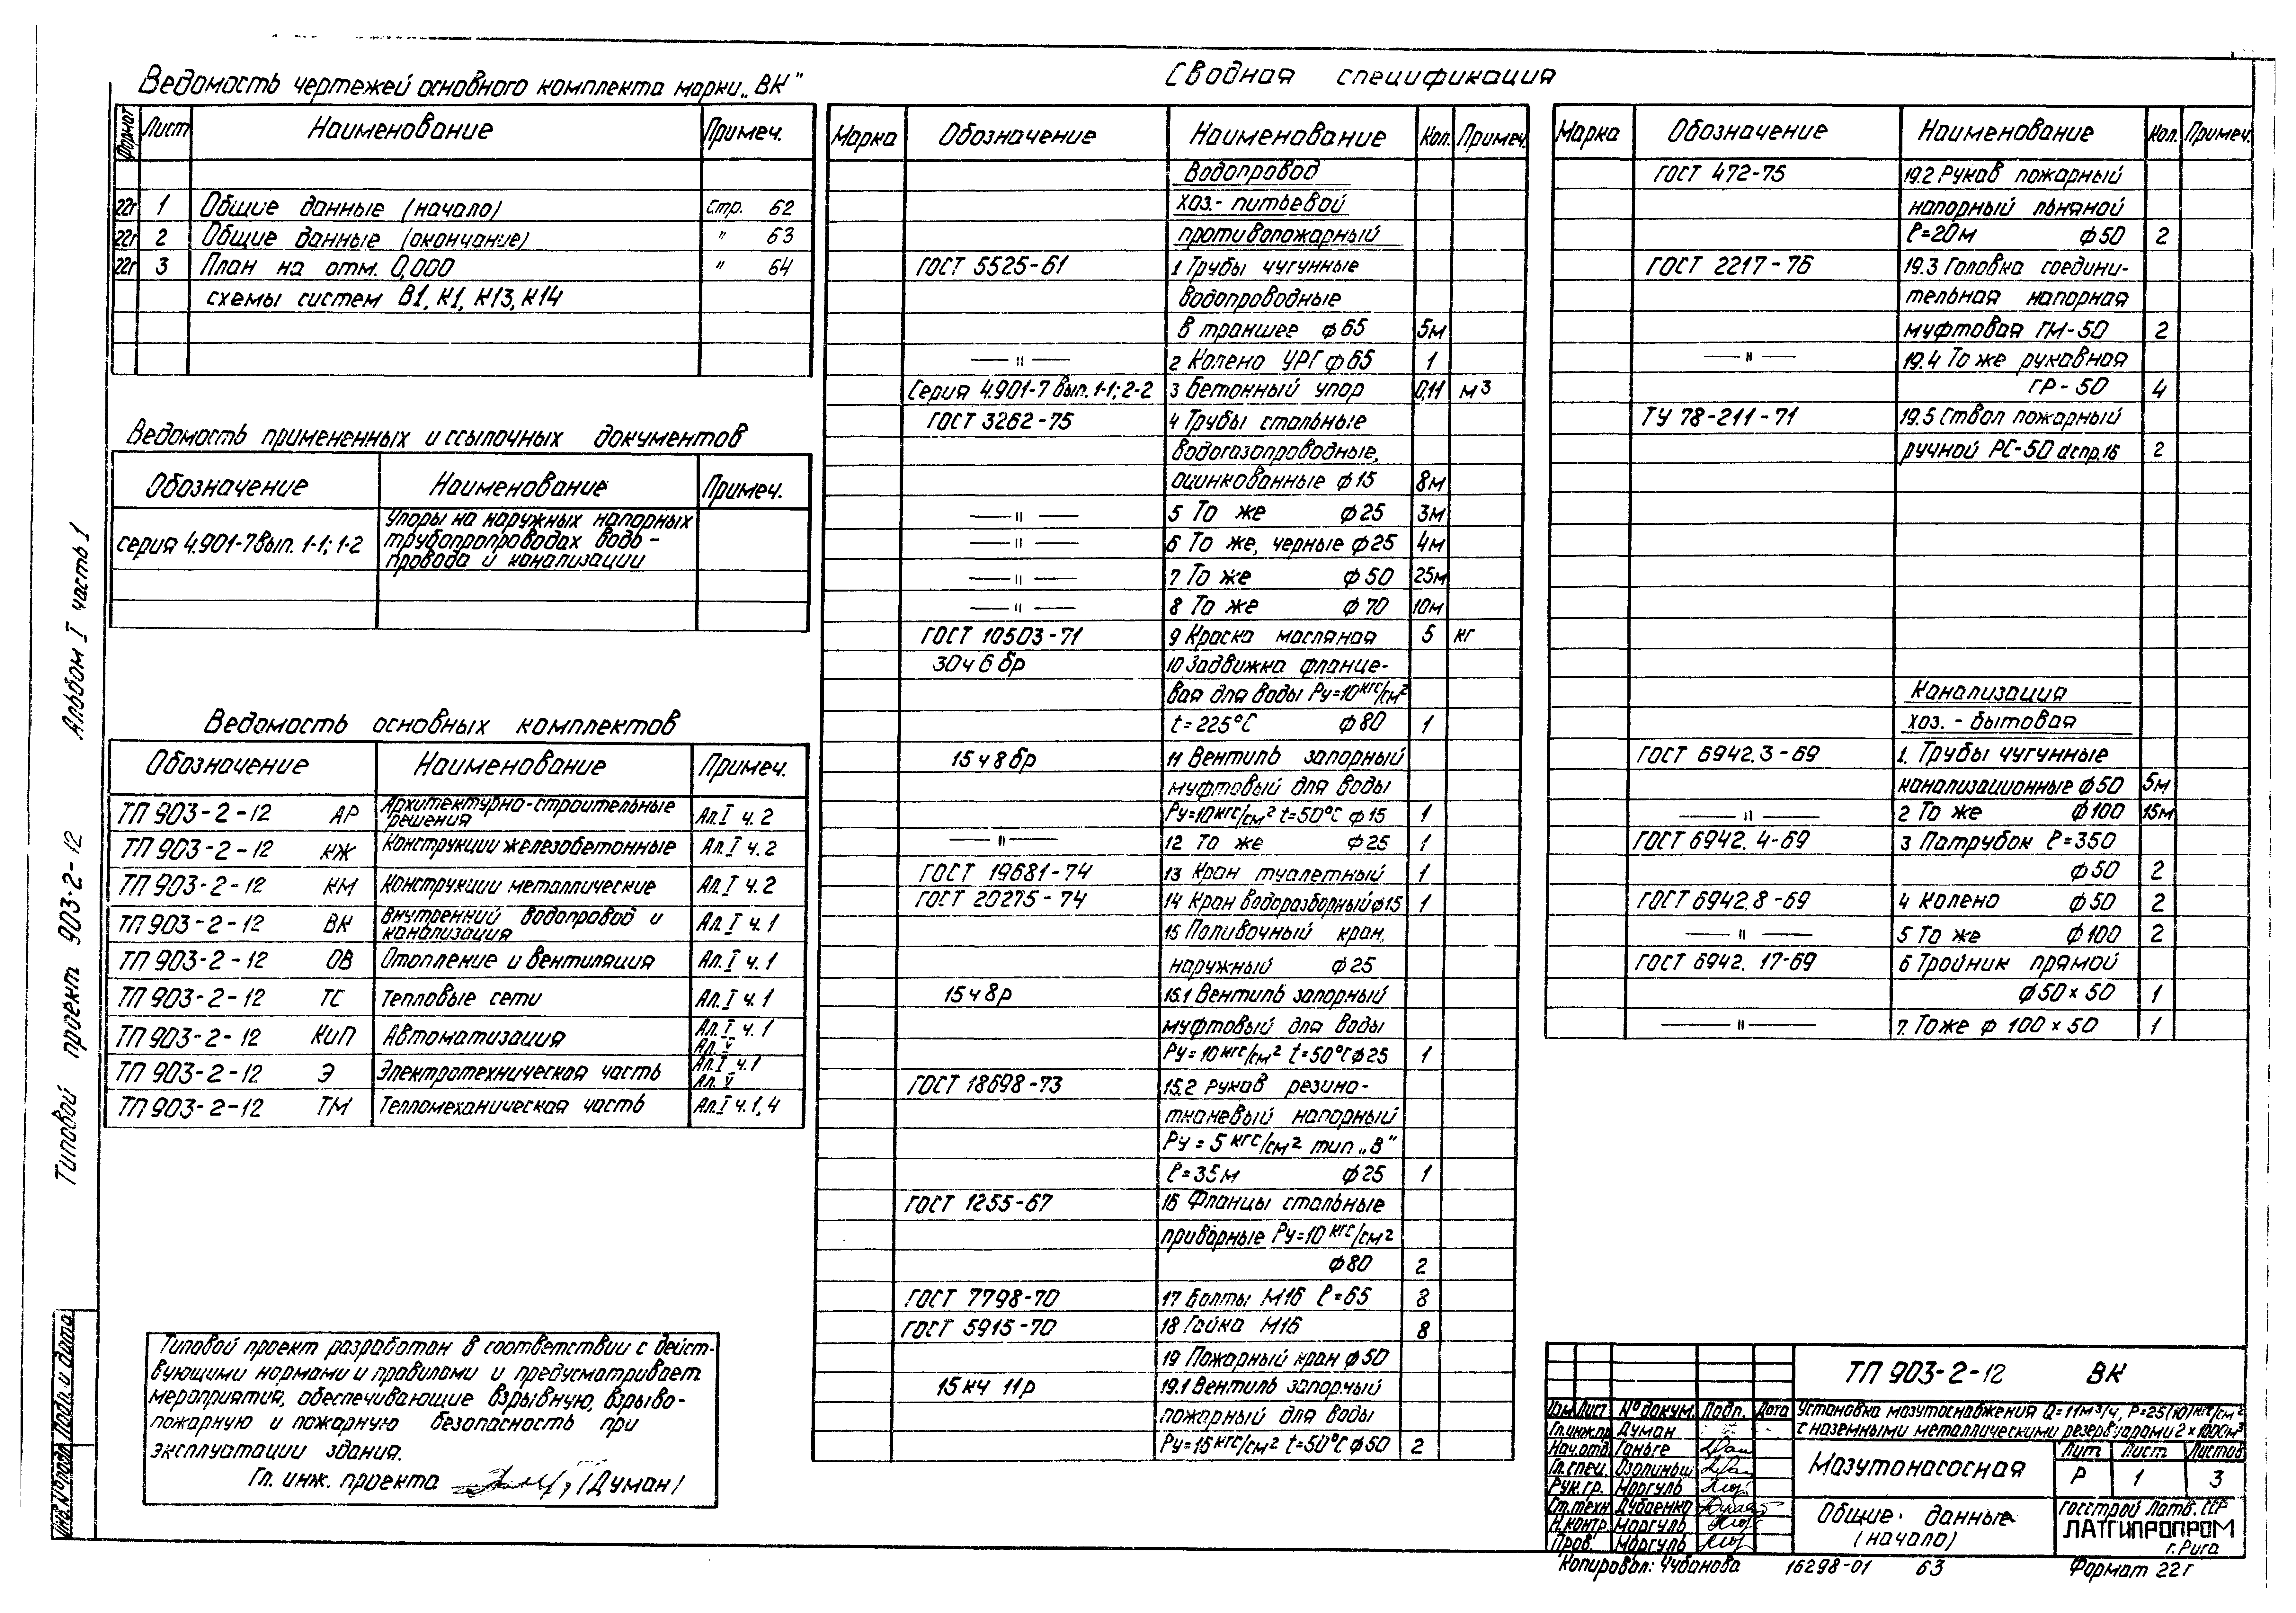 Альбом I часть 1
Типовой проект 903-2-12
Ведомость чертежей основного комплекта марки „ВК"
Формат Лист Наименование Примеч.
22г 1 Общие данные (начало) Стр. 62
22г 2 Общие данные (окончание) " 63
22г 3 План на отм. 0,000 " 64
схемы систем В1, К1, К13, К14
Ведомость примененных и ссылочных документов
Обозначение Наименование Примеч.
серия 4.901-7 вып. 1-1; 1-2 Упоры на наружных напорных
трубопропроводах водо-
провода и канализации
Ведомость основных комплектов
Обозначение Наименование Примеч.
ТП 903-2-12 АР Архитектурно-строительные решения Ал. I ч. 2
ТП 903-2-12 КЖ Конструкции железобетонные Ал. I ч. 2
ТП 903-2-12 КМ Конструкции металлические Ал. I ч. 2
ТП 903-2-12 ВК Внутренний водопровод и канализация Ал. I ч. 1
ТП 903-2-12 ОВ Отопление и вентиляция Ал. I ч. 1
ТП 903-2-12 ТС Тепловые сети Ал. I ч. 1
ТП 903-2-12 КиП Автоматизация Ал. I ч. 1 Ал. V
ТП 903-2-12 Э Электротехническая часть Ал. I ч. 1 Ал. V
ТП 903-2-12 ТМ Тепломеханическая часть Ал. I ч. 1, 4
Типовой проект разработан в соответствии с дейст-
вующими нормами и правилами и предусматривает
мероприятия, обеспечивающие взрывную, взрыво-
пожарную и пожарную безопасность при
эксплуатации здания.
Гл. инж. проекта /Думан/
Сводная спецификация
Марка Обозначение Наименование Кол. Примеч.
Водопровод
хоз.- питьевой
противопожарный
ГОСТ 5525-61 1 Трубы чугунные
водопроводные
в траншее ф65 5м
—— " —— 2 Колено УРГ ф65 1
Серия 4.901-7 вып. 1-1; 2-2 3 Бетонный упор 0,11 м3
ГОСТ 3262-75 4 Трубы стальные
водогазопроводные,
оцинкованные ф15 8м
—— " —— 5 То же ф25 3м
—— " —— 6 То же, черные ф25 4м
—— " —— 7 То же ф50 25м
—— " —— 8 То же ф70 10м
ГОСТ 10503-71 9 Краска масляная 5 кг
30ч 6 бр 10 Задвижка фланце-
вая для воды Ру=10 кгс/см2
t=225°С ф80 1
15 ч 8 бр 11 Вентиль запорный
муфтовый для воды
Ру=10 кгс/см2 t=50°С ф15 1
—— " —— 12 То же ф25 1
ГОСТ 19681-74 13 Кран туалетный 1
ГОСТ 20275-74 14 Кран водоразборный ф15 1
15 Поливочный кран,
наружный ф25
15 ч 8р 15.1 Вентиль запорный
муфтовый для воды
Ру=10 кгс/см2 t=50°С ф25 1
ГОСТ 18698-73 15.2 Рукав резино-
тканевый напорный
Ру=5 кгс/см2 тип „В"
ℓ=35м ф25 1
ГОСТ 1255-67 16 Фланцы стальные
приварные Ру=10 кгс/см2
ф80 2
ГОСТ 7798-70 17 Болты М16 ℓ=65 8
ГОСТ 5915-70 18 Гайка М16 8
19 Пожарный кран ф50
15 кч 11р 19.1 Вентиль запорный
пожарный для воды
Ру=16 кгс/см2 t=50°С ф50 2
Марка Обозначение Наименование Кол. Примеч.
ГОСТ 472-75 19.2 Рукав пожарный
напорный льняной
ℓ=20м ф50 2
ГОСТ 2217-76 19.3 Головка соедини-
тельная напорная
муфтовая ГМ-50 2
—— " —— 19.4 То же рукавная
ГР-50 4
ТУ 78-211-71 19.5 Ствол пожарный
ручной РС-50 dспр.16 2
Канализация
хоз. - бытовая
ГОСТ 6942.3-69 1. Трубы чугунные
канализационные ф50 5м
—— " —— 2 То же ф100 15м
ГОСТ 6942.4-69 3 Патрубок ℓ=350
ф50 2
ГОСТ 6942.8-69 4 Колено ф50 2
—— " —— 5 То же ф100 2
ГОСТ 6942.17-69 6 Тройник прямой
ф50×50 1
—— " —— 7. Тоже ф 100×50 1
ТП 903-2-12 ВК
Изм Лист № докум. Подп. Дата
Установка мазутоснабжения Q=11м3/ч, Р=25(10) кгс/см2
с наземными металлическими резервуарами 2×100см3
Гл.инж.пр Думан
Нач.отд. Ганьге
Гл.спец. Озолиньш
Рук.гр. Моргуль
Ст.техн. Дубаенко
Н.контр. Моргуль
Пров. Моргуль
Мазутонасосная
Лит. Лист. Листов
Р 1 3
Общие данные
(начало)
Госстрой Латв. ССР
ЛАТГИПРОПРОМ
г. Рига
Копировал: Чубанова 16298-01 63 Формат 22г
Инв.№ подл. Подп. и дата